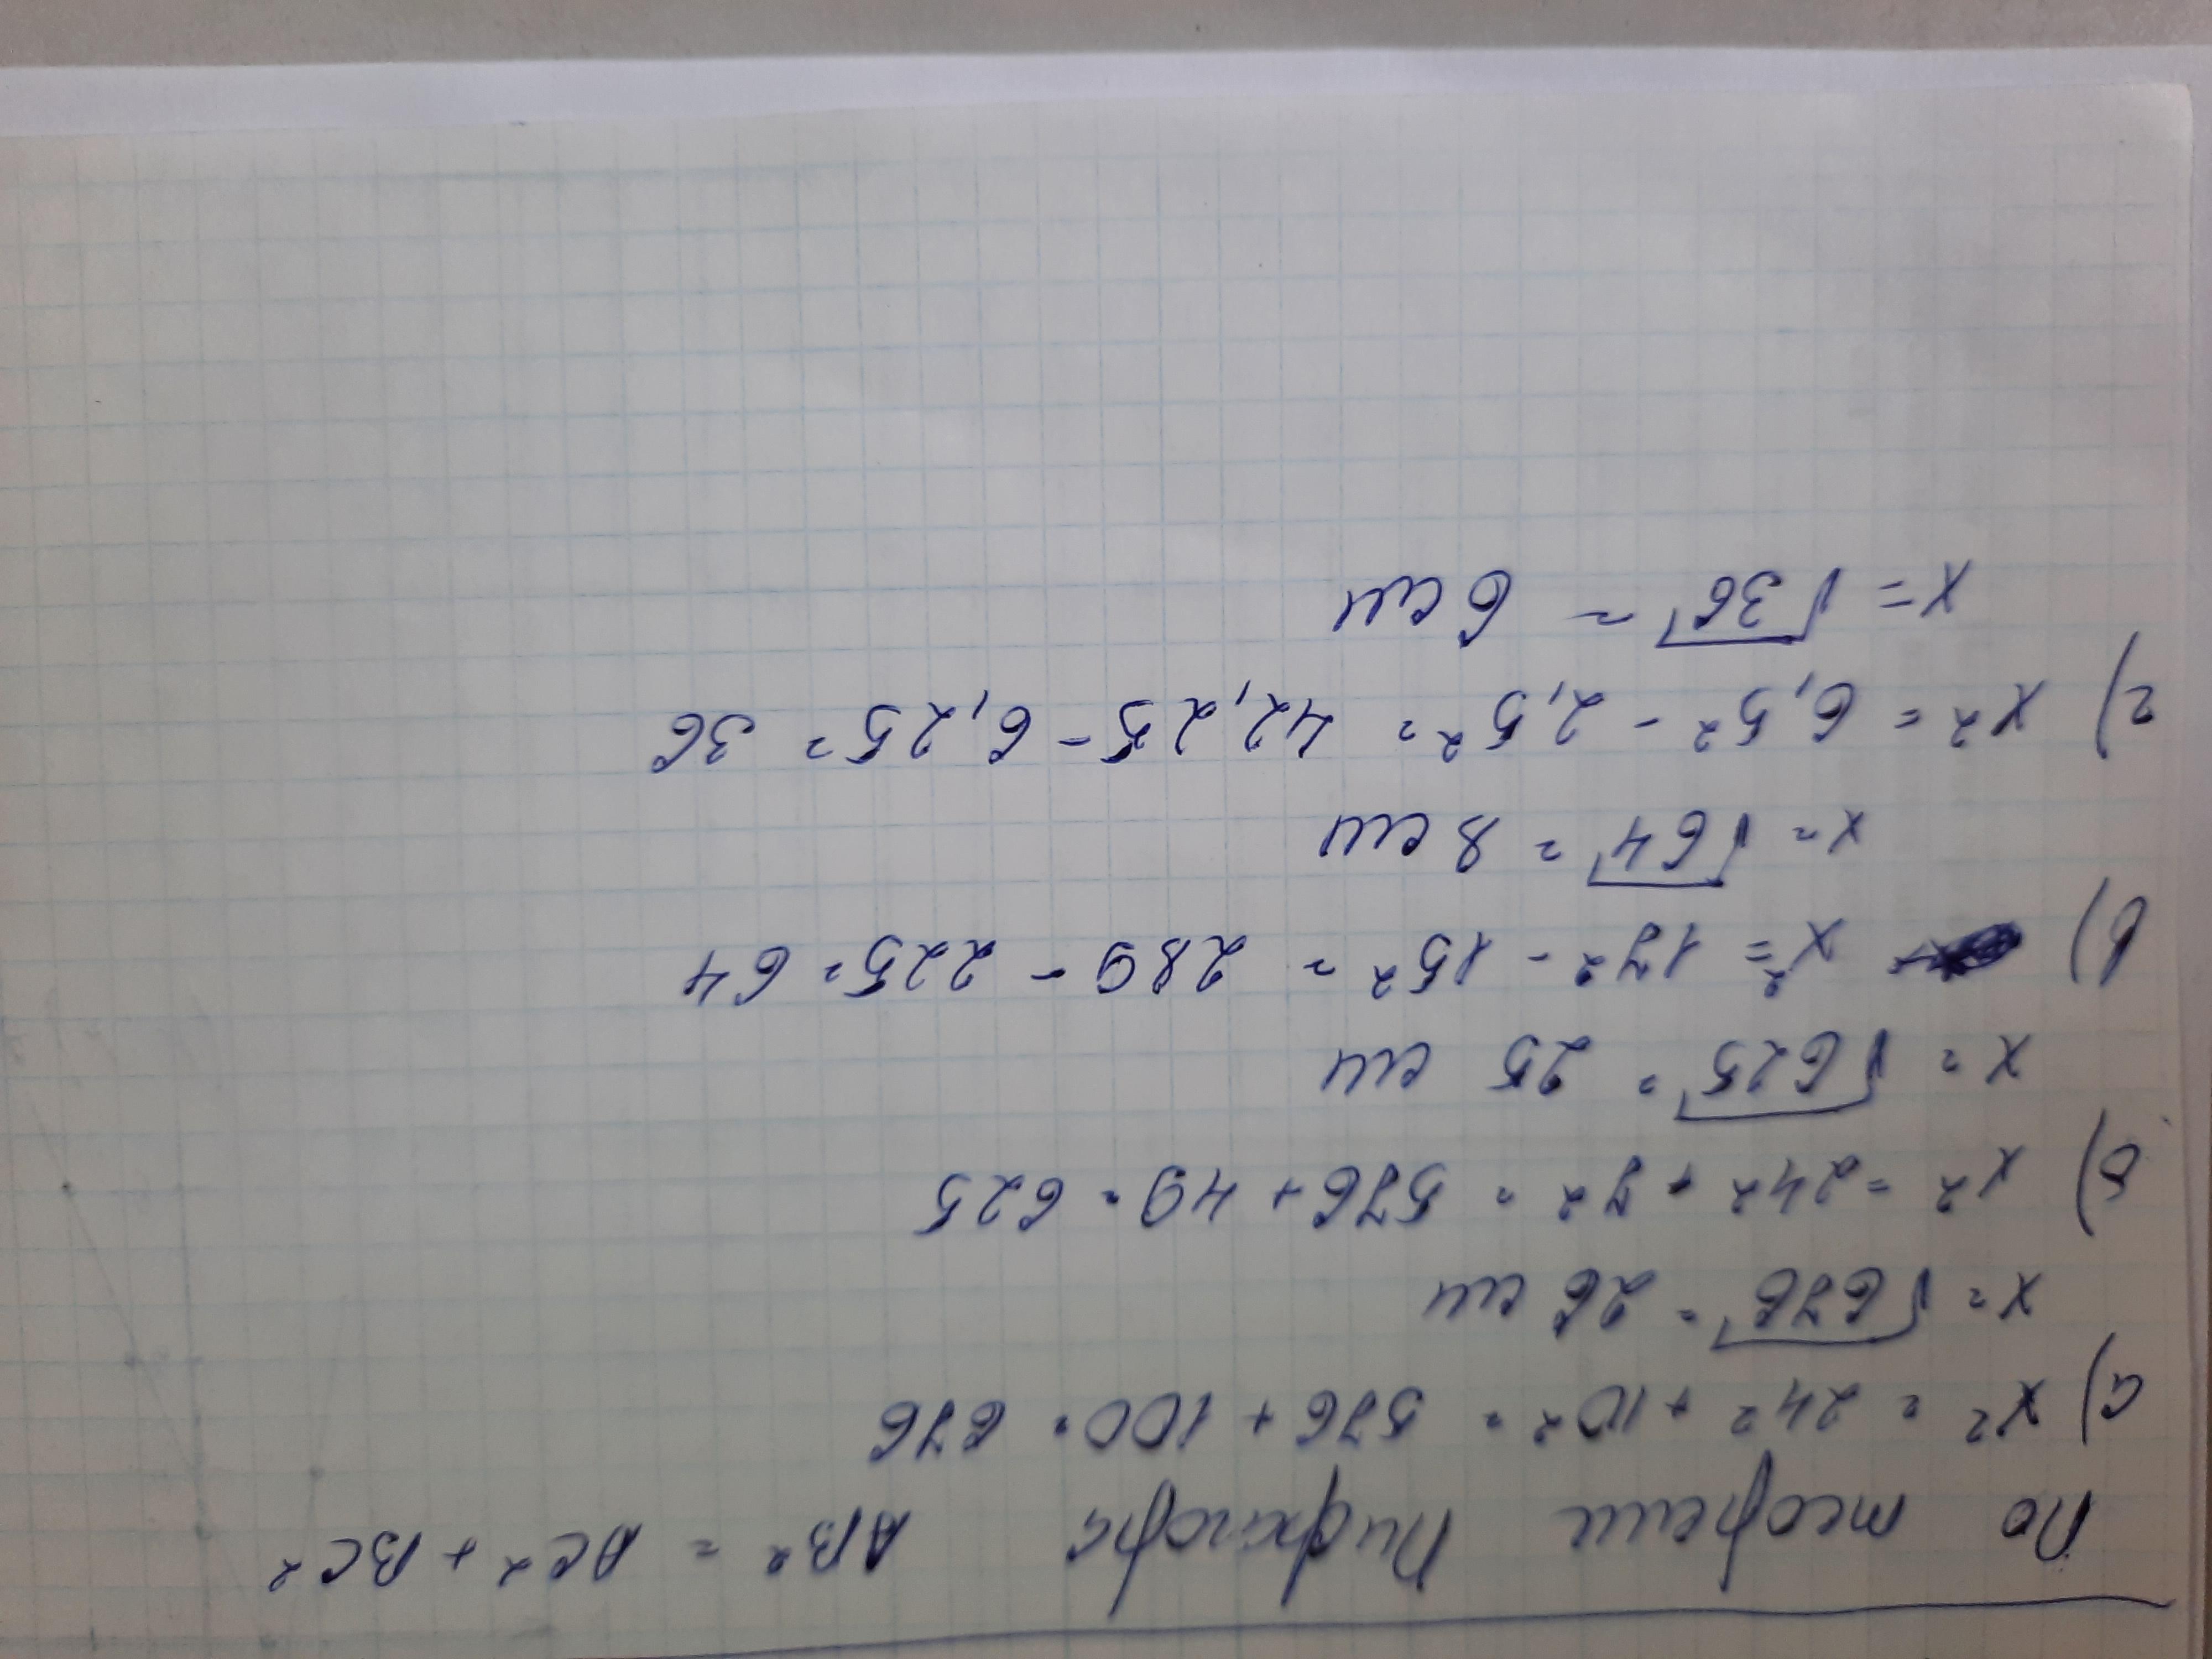 По теореме Пифагора AB² = AC² + BC²
а) x² = 24² + 10² = 576 + 100 = 676
x = √676 = 26 см
б) x² = 24² + 7² = 576 + 49 = 625
x = √625 = 25 см
в) x² = 17² - 15² = 289 - 225 = 64
x = √64 = 8 см
г) x² = 6,5² - 2,5² = 42,25 - 6,25 = 36
x = √36 = 6 см